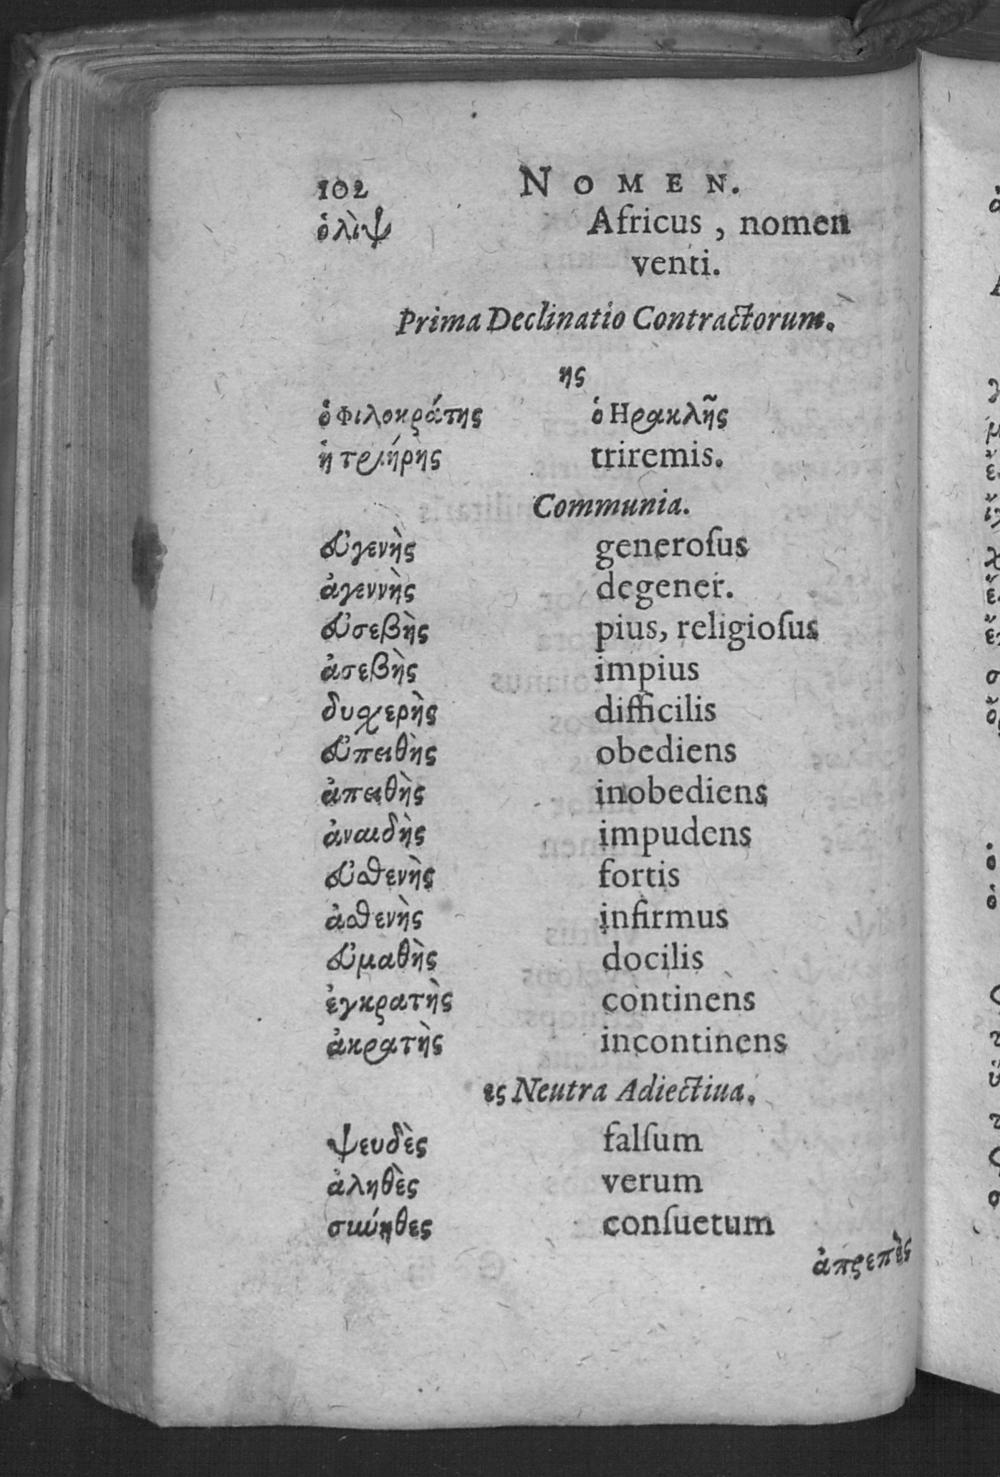 102 NOMEN.
ὁ λὶψ Africus, nomen
venti.
Prima Declinatio Contractorum.
ης
ὁ Φιλοκράτης ὁ Ηρακλῆς
ἡ τριήρης triremis.
Communia.
εὐγενὴς generoſus
ἀγεννὴς degener.
εὐσεβὴς pius, religioſus
ἀσεβὴς impius
δυσχερὴς difficilis
εὐπειθὴς obediens
ἀπειθὴς inobediens
ἀναιδὴς impudens
εὐσθενὴς fortis
ἀσθενὴς infirmus
εὐμαθὴς docilis
ἐγκρατὴς continens
ἀκρατὴς incontinens
ες Neutra Adiectiua.
ψευδὲς falſum
ἀληθὲς verum
σιωύηθες conſuetum
ἀπρεπὲς